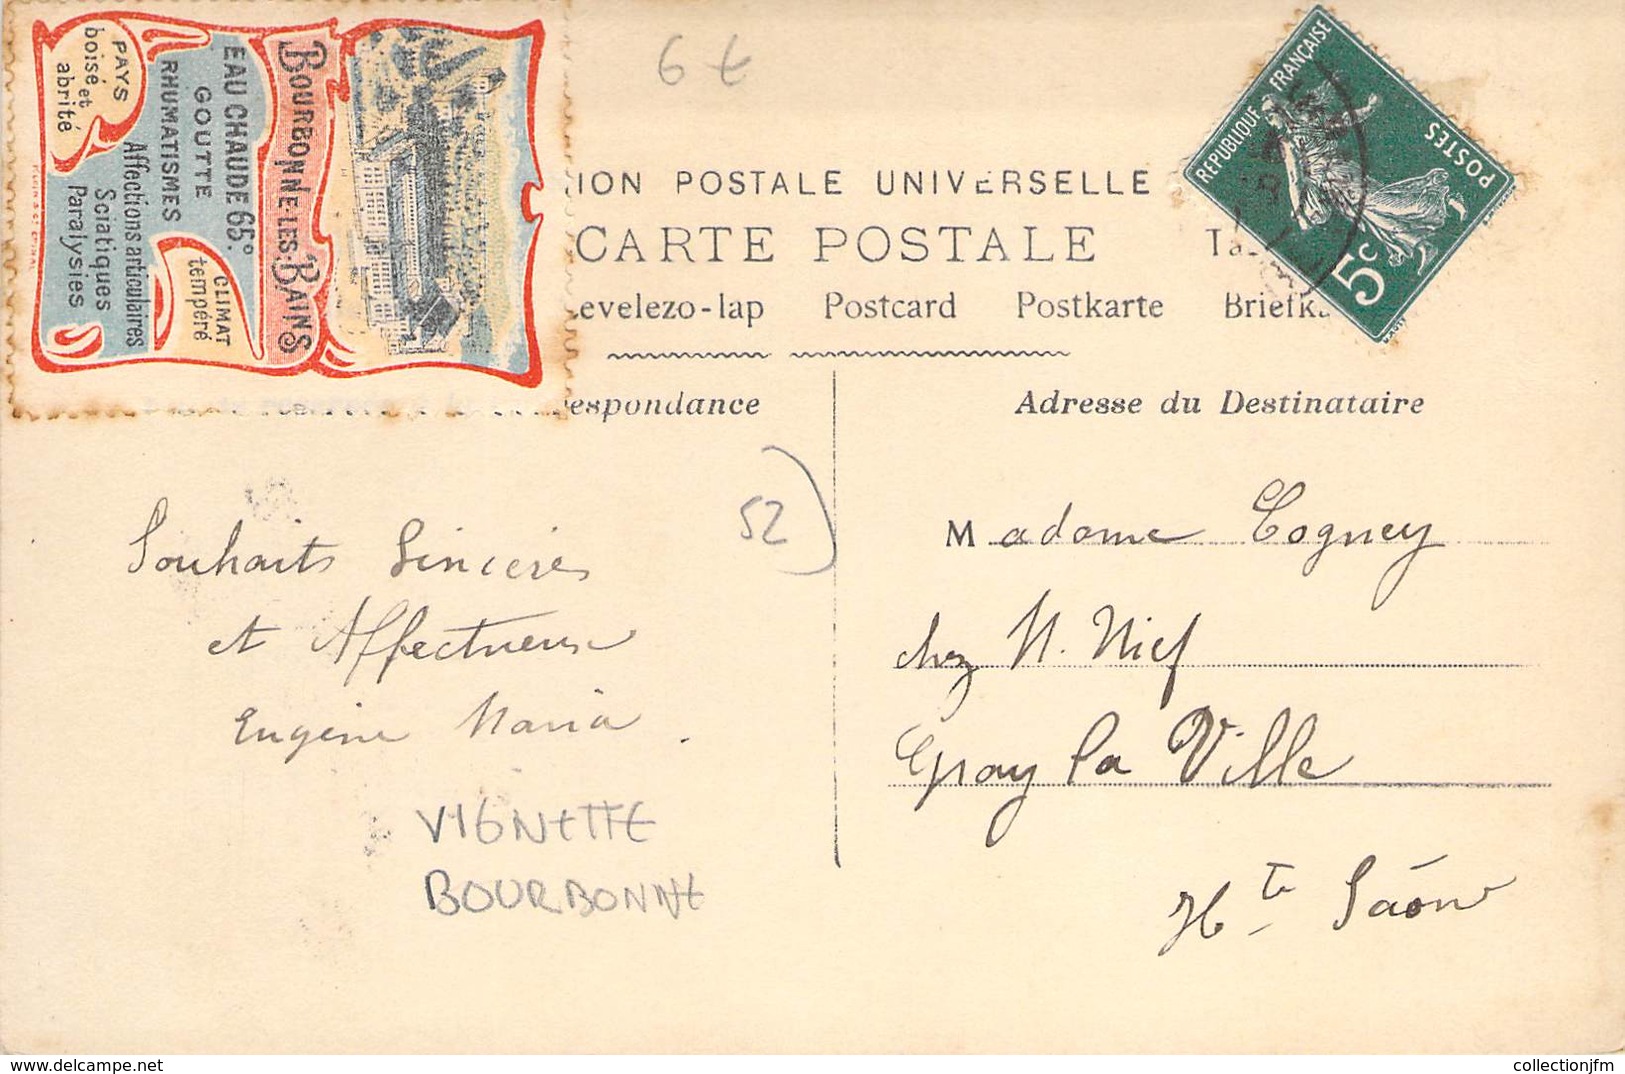 BOURBONNE-LES-BAINS
EAU CHAUDE 65°
GOUTTE
RHUMATISMES
Affections articulaires
Sciatiques
Paralysies
CLIMAT
tempéré
PAYS
boisé et
abrité
6 €
REPUBLIQUE FRANÇAISE
POSTES
5c
ION POSTALE UNIVERSELLE
CARTE POSTALE
evelezo-lap Postcard Postkarte Briefk
espondance
Adresse du Destinataire
52
Souhaits Sincères
et Affectueux
Eugène Maria
VIGNETTE
BOURBONNE
Madame Cogney
chez M. Nief
Gray la Ville
Hte Saône
collectionjfm